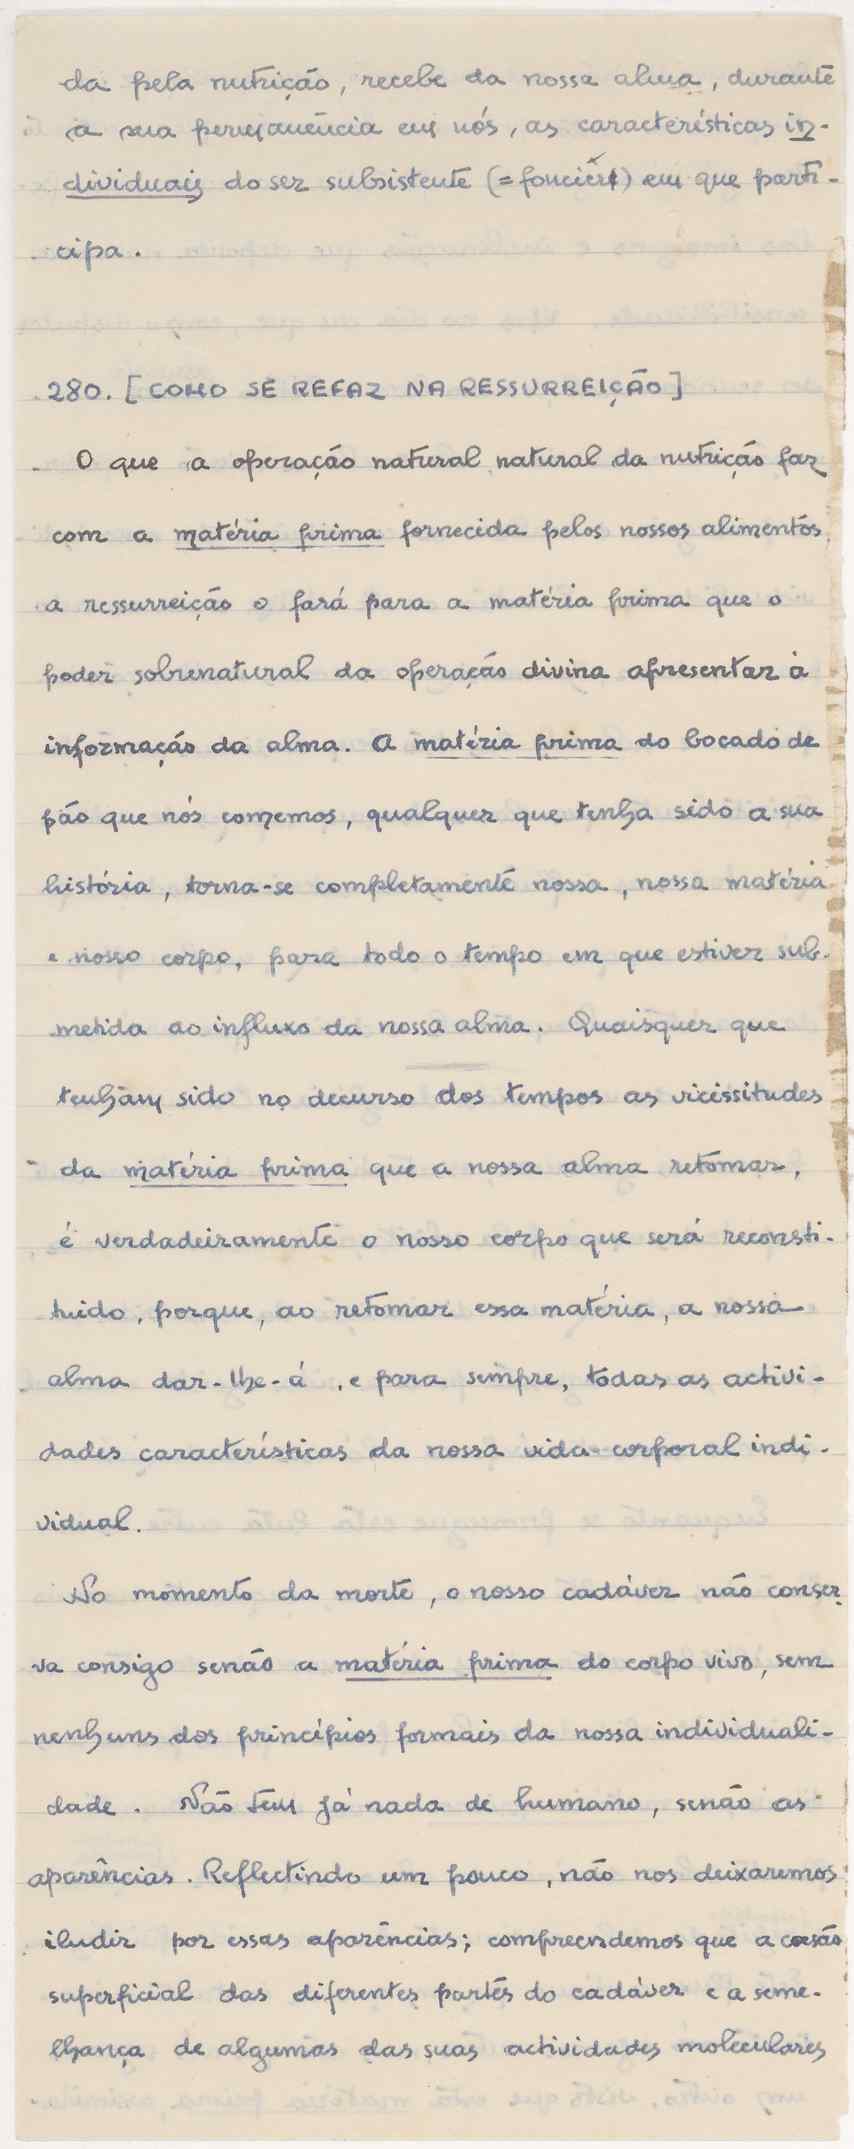 da pela nutrição, recebe da nossa alma, durante
a sua permanência em nós, as características in-
dividuais do ser subsistente (= foncière) em que parti-
cipa.
280. [COMO SE REFAZ NA RESSURREIÇÃO]
O que a operação natural natural da nutrição faz
com a matéria prima fornecida pelos nossos alimentos,
a ressurreição o fará para a matéria prima que o
poder sobrenatural da operação divina apresentar à
informação da alma. A matéria prima do bocado de
pão que nós comemos, qualquer que tenha sido a sua
história, torna-se completamente nossa, nossa matéria
e nosso corpo, para todo o tempo em que estiver sub-
metida ao influxo da nossa alma. Quaisquer que
tenham sido no decurso dos tempos as vicissitudes
da matéria prima que a nossa alma retomar,
é verdadeiramente o nosso corpo que será reconsti-
tuido, porque, ao retomar essa matéria, a nossa
alma dar-lhe-á, e para sempre, todas as activi-
dades características da nossa vida corporal indi-
vidual.
No momento da morte, o nosso cadáver não conser-
va consigo senão a matéria prima do corpo vivo, sem
nenhuns dos princípios formais da nossa individuali-
dade. Não tem já nada de humano, senão as
aparências. Reflectindo um pouco, não nos deixaremos
iludir por essas aparências; compreendemos que a coesão
superficial das diferentes partes do cadáver e a seme-
lhança de algumas das suas actividades moleculares